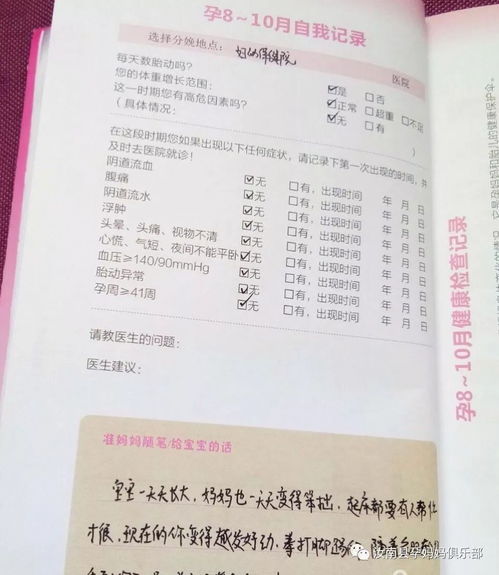 孕8~10月自我记录
选择分娩地点： 妇幼保健院 医院
每天数胎动吗？ ☑是 □否
您的体重增长范围： ☑正常 □超重 □不足
这一时期您有高危因素吗？ ☑无 □有
（具体情况： ）
在这段时期您如果出现以下任何症状，请记录下第一次出现的时间，并
及时去医院就诊！
阴道流血 ☑无 □有，出现时间 年 月 日
腹痛 ☑无 □有，出现时间 年 月 日
阴道流水 ☑无 □有，出现时间 年 月 日
浮肿 ☑无 □有，出现时间 年 月 日
头晕、头痛、视物不清 ☑无 □有，出现时间 年 月 日
心慌、气短、夜间不能平卧 ☑无 □有，出现时间 年 月 日
血压≥140/90mmHg ☑无 □有，出现时间 年 月 日
胎动异常 ☑无 □有，出现时间 年 月 日
孕周≥41周 ☑无 □有，出现时间 年 月 日
请教医生的问题：
医生建议：
准妈妈随笔/给宝宝的话
宝宝一天天长大，妈妈也一天天变得笨拙，起床都要有人帮忙
才很，现在的你变得越发好动，拳打脚踢
孕8~10月健康检查记录
汝南县孕妈妈俱乐部